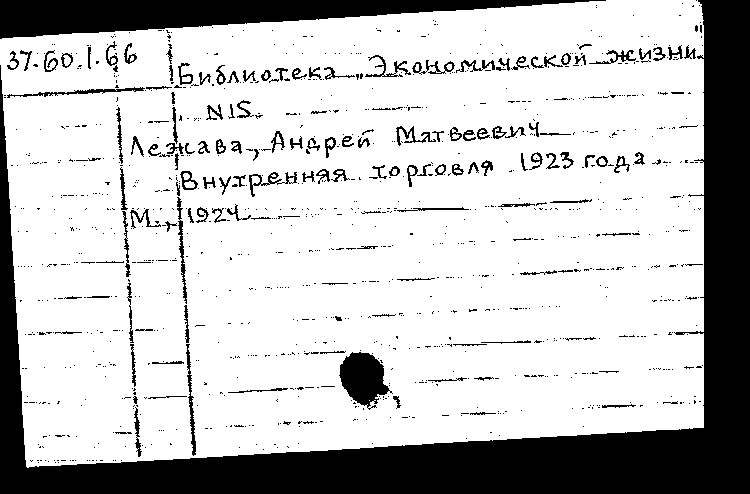 37.60.1.66
Библиотека „Экономической жизни"
N15.
Лежава, Андрей Матвеевич
Внутренняя торговля 1923 года.
М., 1924.